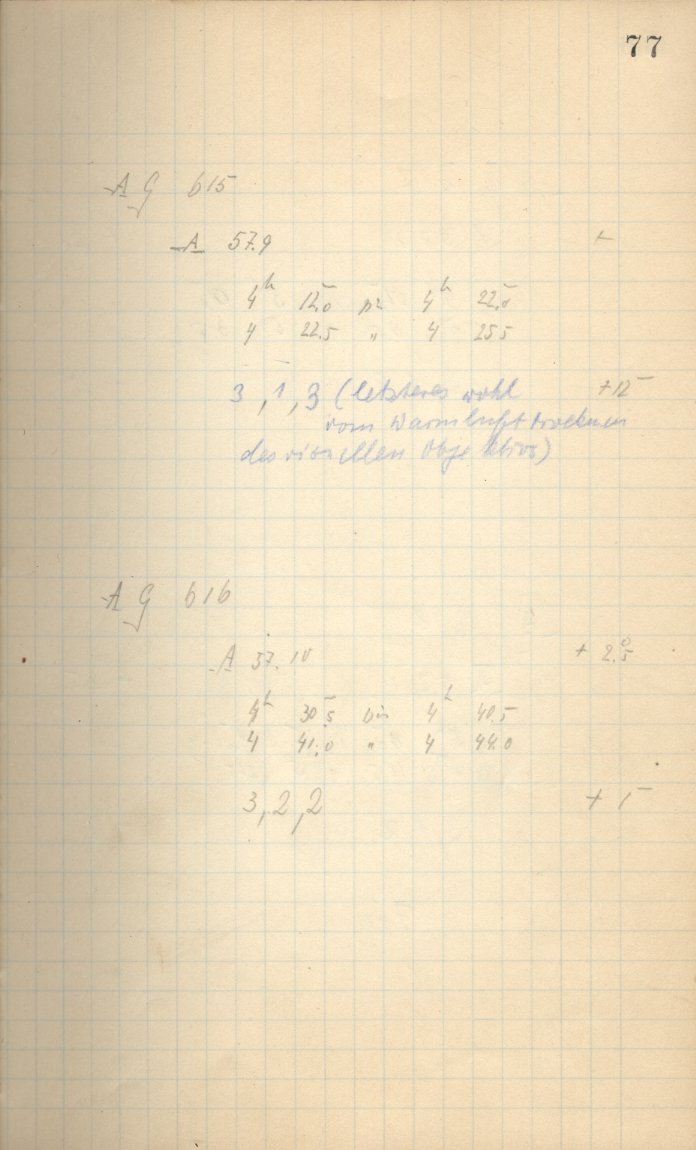 77
AG 615
A 57.9
4ʰ 12.0 bis 4ʰ 22.0
4 22.5 " 4 25.5
3, 1, 3 (letzteres wohl +12
vom Warmlufttrocknen
des visuellen Objektivs)
AG 616
A 57.10 + 2.5
4ʰ 30.5 bis 4ʰ 40.5
4 41.0 " 4 44.0
3, 2, 2 + 1